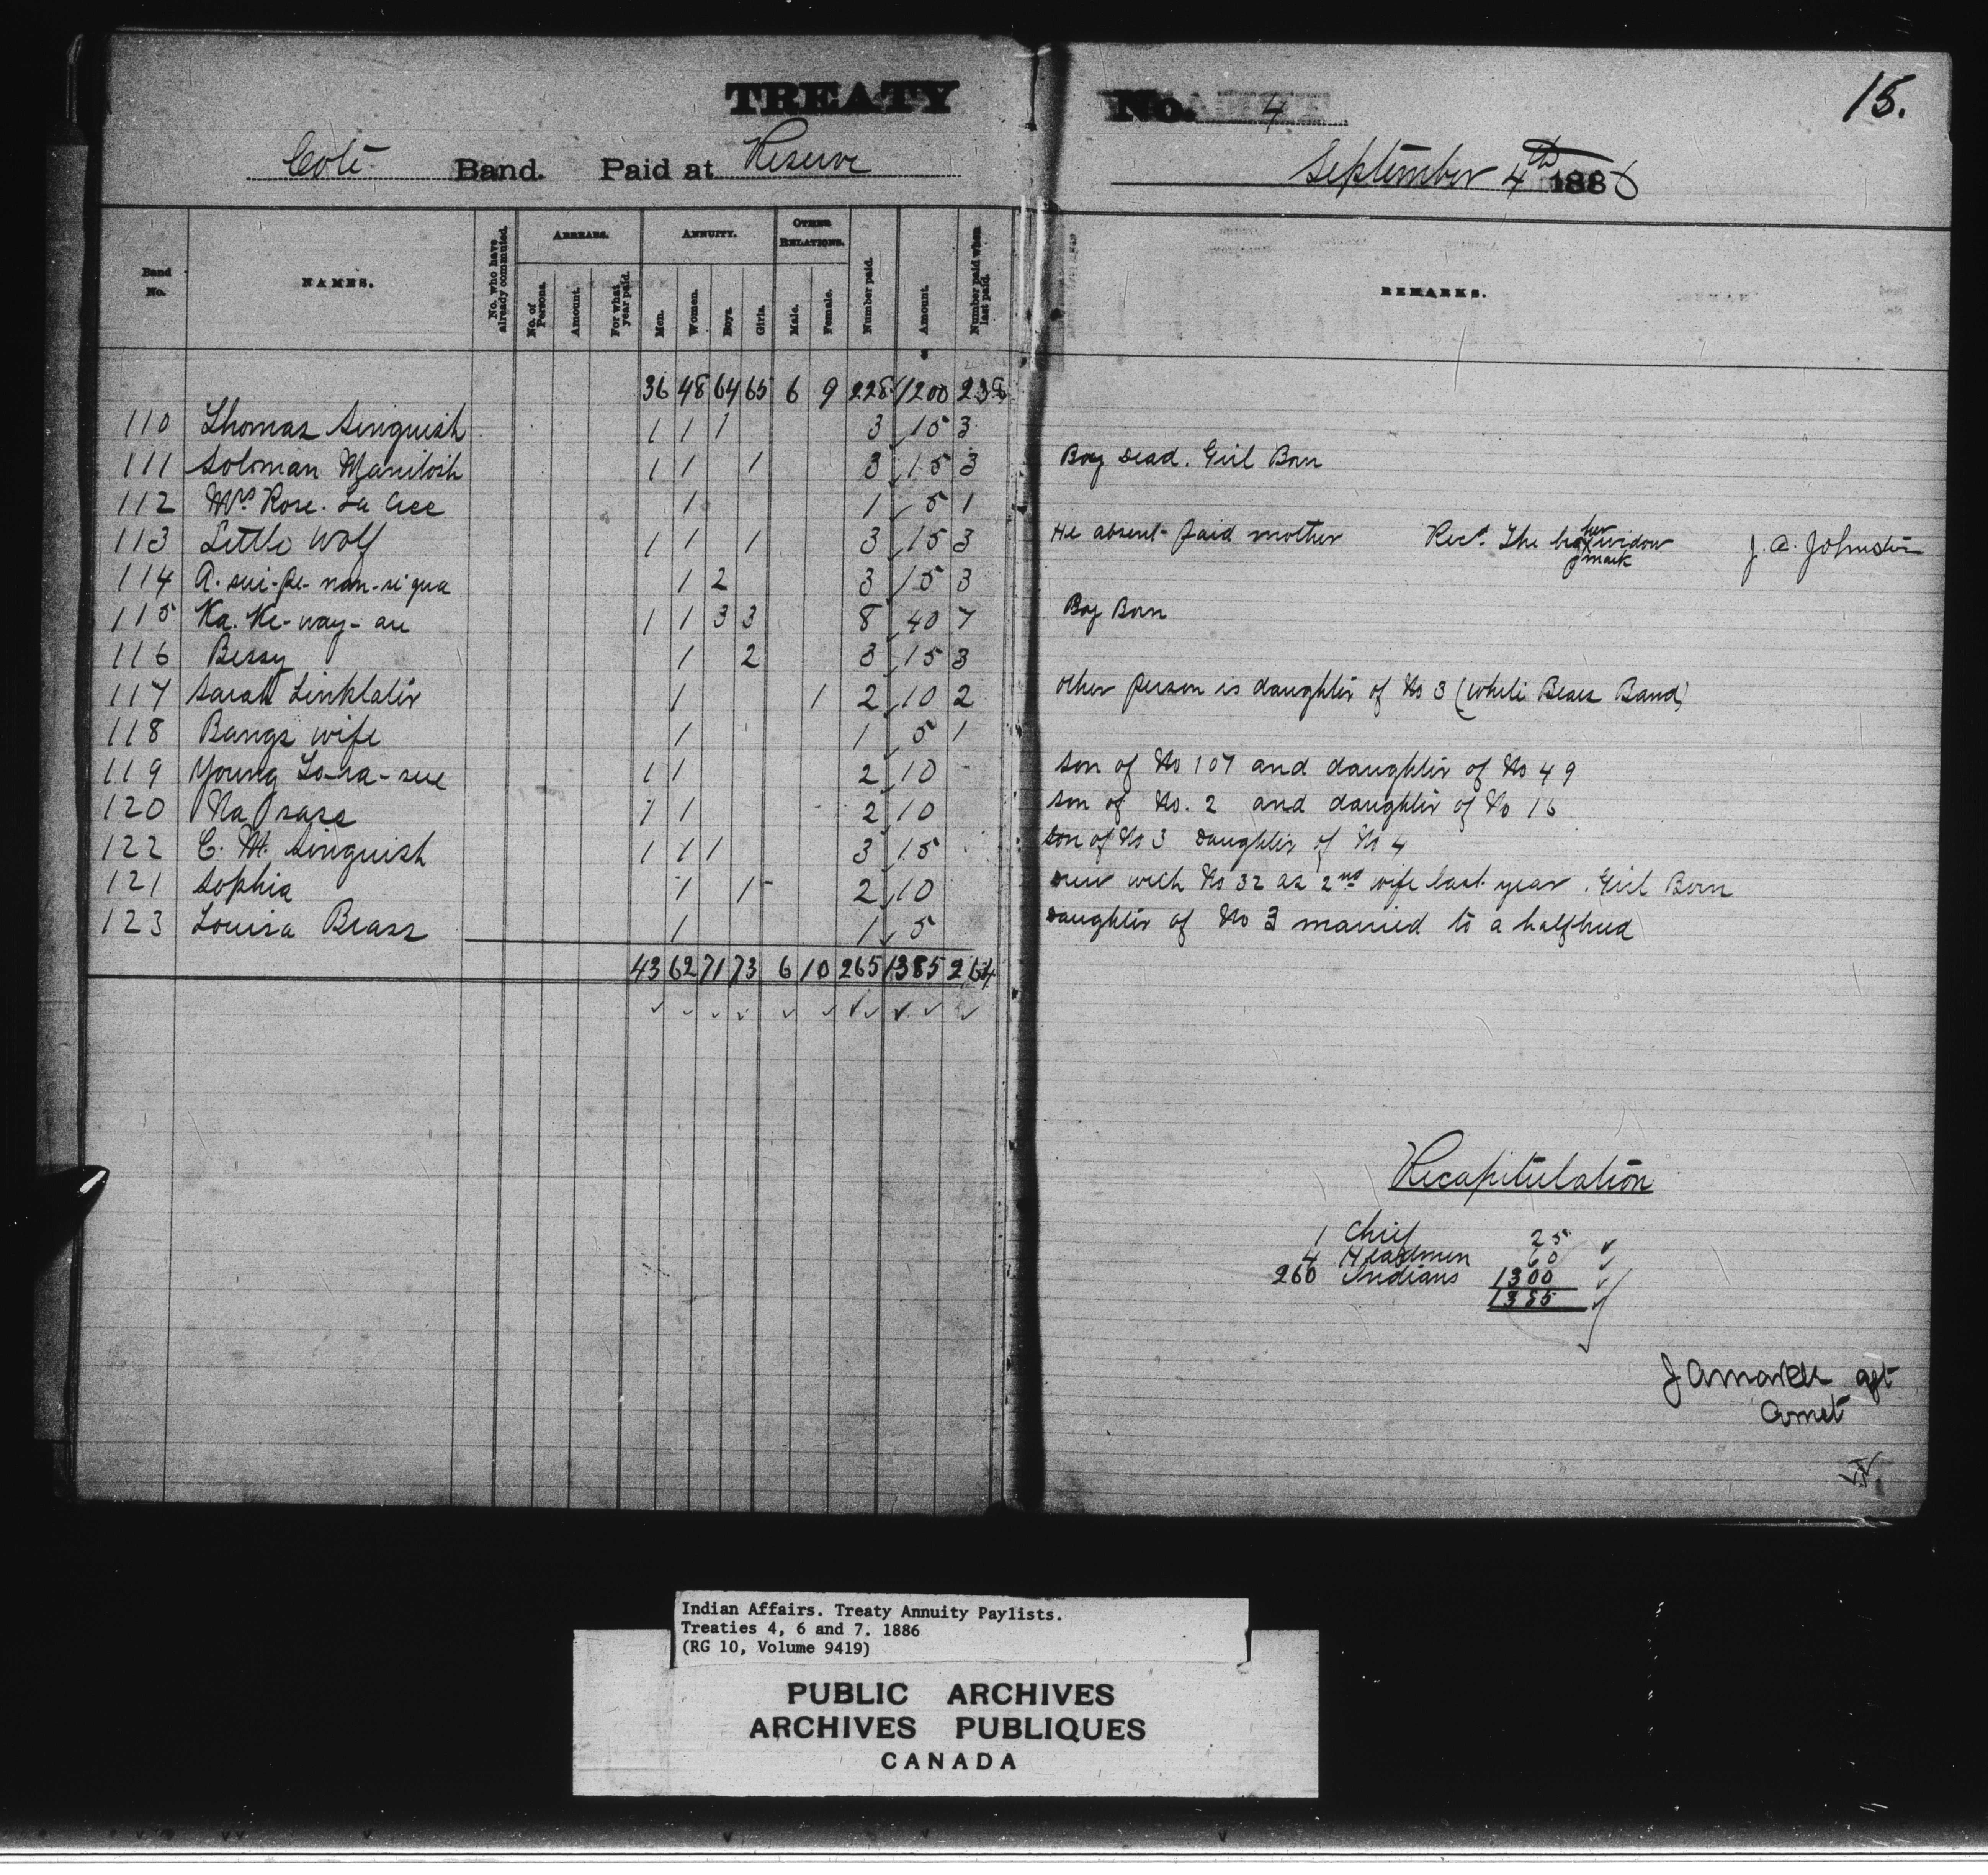 TREATY No. 4
15.
Cote Band. Paid at Reserve September 4th 1886
Band No. NAMES. No. who have already commuted. ARREARS. No. of Persons. Amount. For what year paid. ANNUITY. Men. Women. Boys. Girls. OTHER RELATIONS. Male. Female. Number paid. Amount. Number paid when last paid. REMARKS.
36 48 64 65 6 9 228 1200 238
110 Thomas Singuish 1 1 1 3 15 3
111 Soloman Manitosh 1 1 1 3 15 3 Boy Dead. Girl Born
112 Mrs Rose. La 1 1 5 1
113 Little Wolf 1 1 1 3 15 3 He absent paid mother Recd. The her x widow mark J. A. Johnston
114 1 2 3 15 3
115 Ka. Ke-way- 1 1 3 3 8 40 7 Boy Born
116 Bessy 1 2 3 15 3
117 Sarah Linklater 1 1 2 10 2 other person is daughter of No 3 (White Bears Band)
118 Bangs wife 1 1 5 1
119 Young 1 1 2 10 son of No 107 and daughter of No 49
120 1 1 2 10 son of No. 2 and daughter of No 16
122 C. M. Singuish 1 1 1 3 15 son of No 3 Daughter of No 4
121 Sophia 1 1 2 10 drew with No 32 as 2nd wife last year. Girl Born
123 Louisa Brass 1 1 5 Daughter of No 3 married to a halfbreed
43 62 71 73 6 10 265 1385 264
Recapitulation
1 Chief 25
4 Headmen 60
260 Indians 1300
1385
J A Markle agt
Indian Affairs. Treaty Annuity Paylists.
Treaties 4, 6 and 7. 1886
(RG 10, Volume 9419)
PUBLIC ARCHIVES
ARCHIVES PUBLIQUES
CANADA